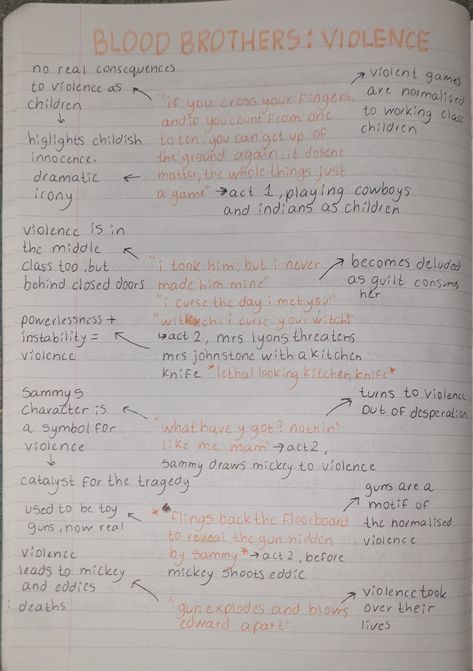 BLOOD BROTHERS: VIOLENCE
no real consequences
to violence as
children
↓
higlights childish
innocence.
dramatic
irony
"if you cross your fingers,
and if you count from one
to ten, you can get up of
the ground again, it dosent
matter, the whole things just
a game" → act 1, playing cowboys
and indians as children
violent games
are normalised
to working class
children
violence is in
the middle
class too, but
behind closed doors
"i took him, but i never
made him mine"
"i curse the day i met you"
"witch. i curse you. witch"
→ act 2, mrs lyons threatens
mrs johnstone with a kitchen
knife *lethal looking kitchen knife*
becomes deluded
as guilt consumes
her
powerlessness +
instability =
violence
Sammys
character is
a symbol for
violence
↓
catalyst for the tragedy
"what have y got? nothin'
like me mam" → act 2,
sammy draws mickey to violence
turns to violence
out of desperation
used to be toy
guns, now real
*flings back the floorboard
to reveal the gun hidden
by sammy* → act 2, before
mickey shoots eddie
guns are a
motif of
the normalised
violence
violence
leads to mickey
and eddies
deaths
"gun explodes and blows
edward apart"
violence took
over their
lives